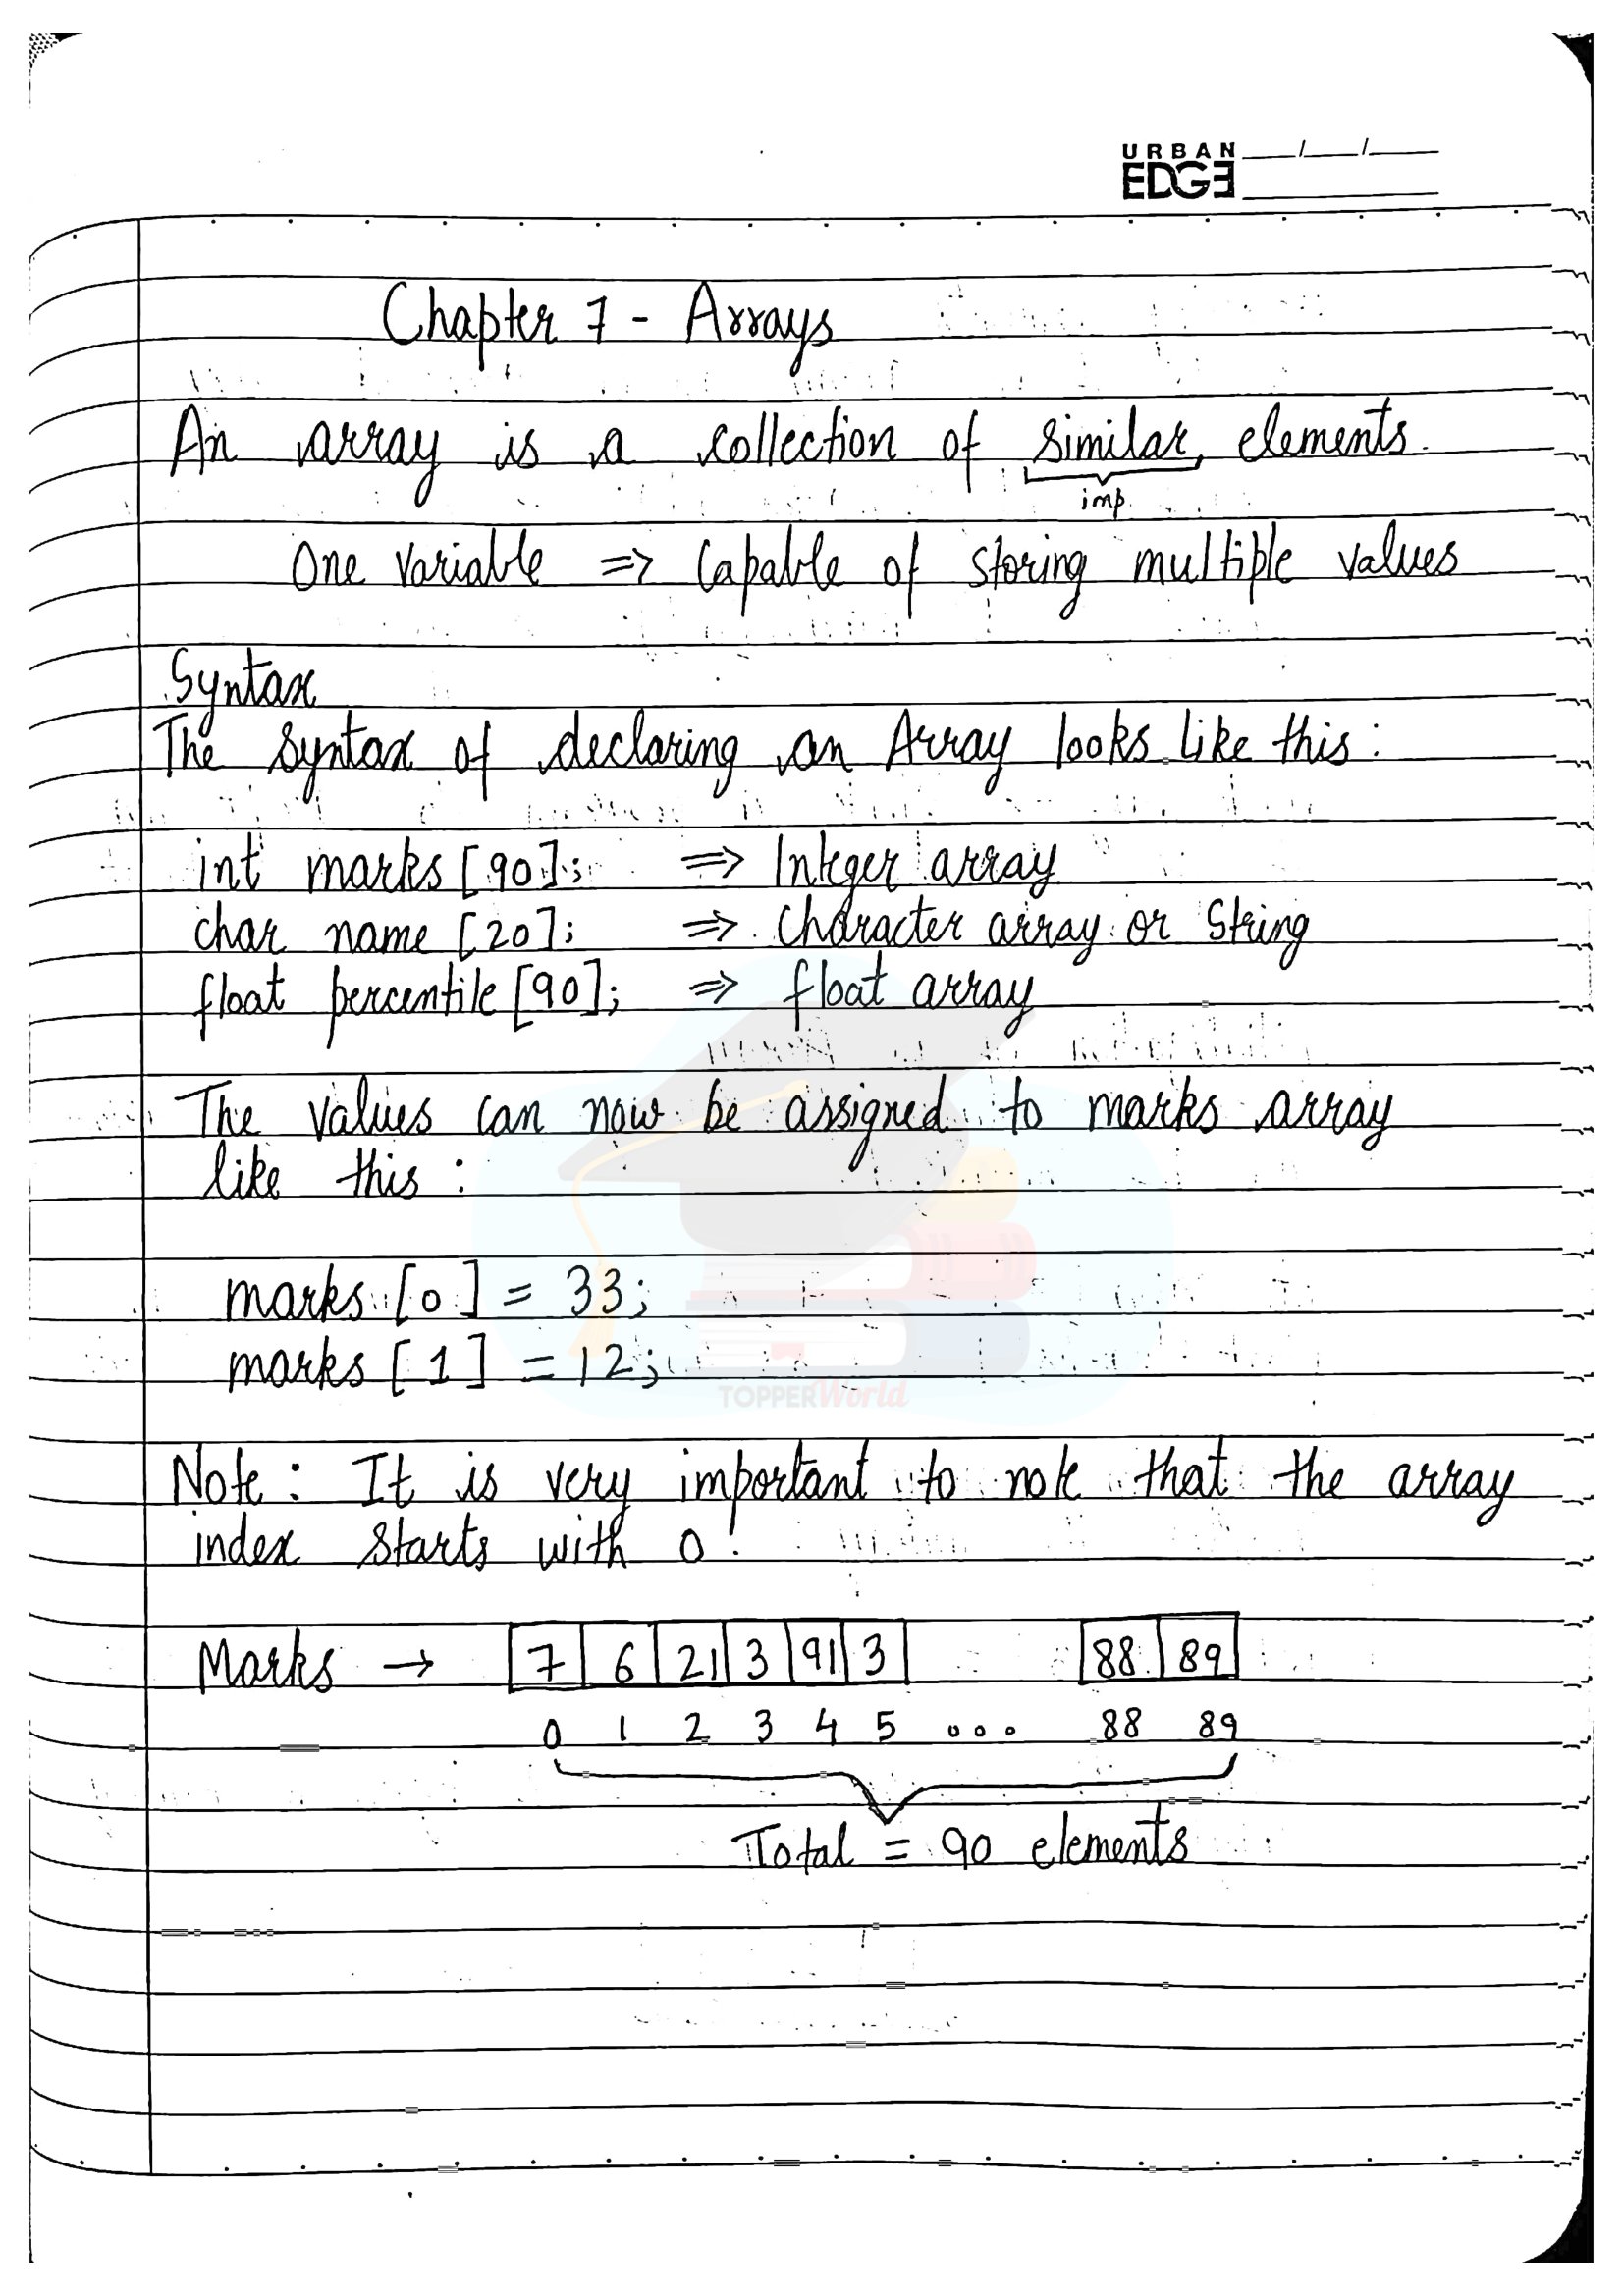 URBAN
EDGE
Chapter 7 - Arrays
An array is a collection of similar elements.
imp.
One variable => Capable of storing multiple values
Syntax
The syntax of declaring an Array looks like this:
int marks [90]; => Integer array
char name [20]; => Character array or String
float percentile [90]; => float array
The values can now be assigned to marks array
like this :
marks [0] = 33;
marks [1] = 12;
TOPPERWorld
Note: It is very important to note that the array
index starts with 0!
Marks → 7 6 21 3 91 3 88 89
0 1 2 3 4 5 ... 88 89
Total = 90 elements